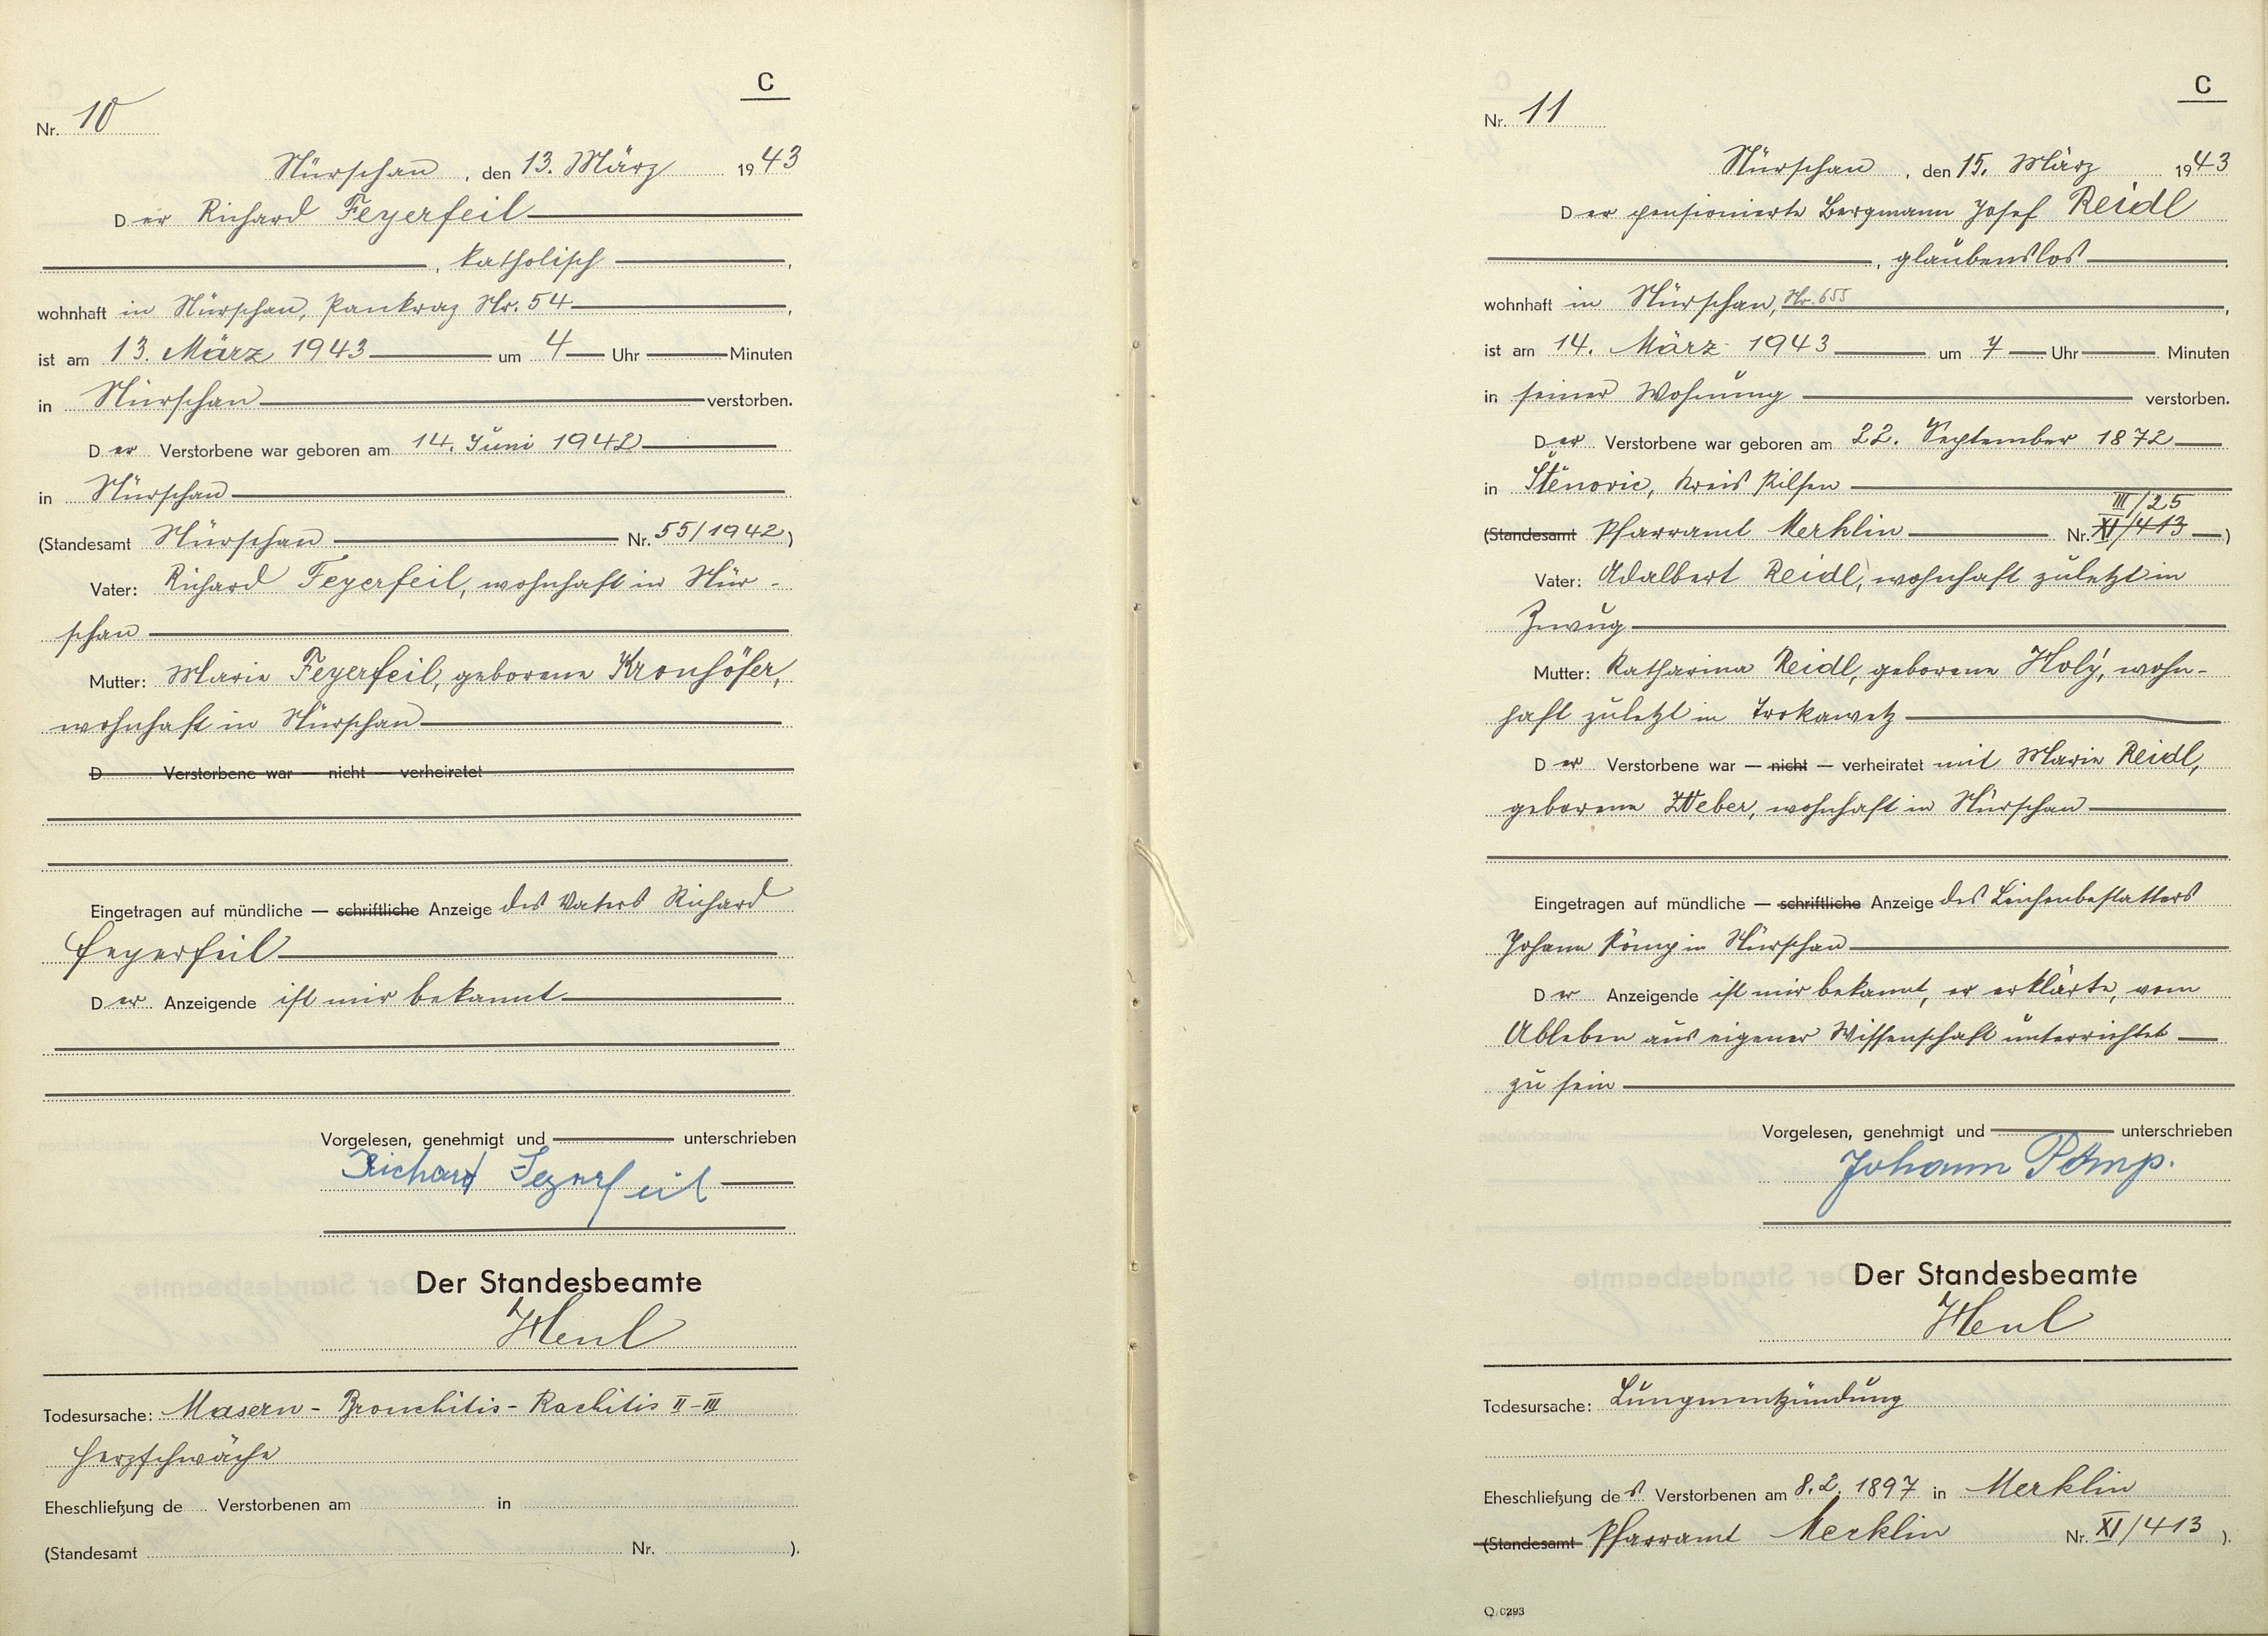 C
Nr. 10
Nürschan, den 13. März 1943
Der Richard Feyerfeil
, katholisch,
wohnhaft in Nürschan, Pankraz Nr. 54,
ist am 13. März 1943 um 4 Uhr Minuten
in Nürschan verstorben.
Der Verstorbene war geboren am 14. Juni 1942
in Nürschan
(Standesamt Nürschan Nr. 55/1942)
Vater: Richard Feyerfeil, wohnhaft in Nür-
schan
Mutter: Marie Feyerfeil, geborene Kronhöfer,
wohnhaft in Nürschan
D Verstorbene war — nicht — verheiratet
Eingetragen auf mündliche — schriftliche Anzeige des Vaters Richard
Feyerfeil
Der Anzeigende ist mir bekannt
Vorgelesen, genehmigt und unterschrieben
Richard Feyerfeil
Der Standesbeamte
Henl
Todesursache: Masern - Bronchitis - Rachitis II-III
Herzschwäche
Eheschließung de Verstorbenen am in
(Standesamt Nr. ).
C
Nr. 11
Nürschan, den 15. März 1943
Der pensionierte Bergmann Josef Reidl
, glaubenslos,
wohnhaft in Nürschan, Nr. 655,
ist am 14. März 1943 um 7 Uhr Minuten
in seiner Wohnung verstorben.
Der Verstorbene war geboren am 22. September 1872
in Štěnovic, Kreis Pilsen
III/25
(Standesamt Pfarramt Merklin Nr. XI/413)
Vater: Adalbert Reidl, wohnhaft zuletzt in
Zwug
Mutter: Katharina Reidl, geborene Holý, wohn-
haft zuletzt in Trokawetz
Der Verstorbene war — nicht — verheiratet mit Marie Reidl,
geborene Weber, wohnhaft in Nürschan
Eingetragen auf mündliche — schriftliche Anzeige des Leichenbestatters
Johann Pömp in Nürschan
Der Anzeigende ist mir bekannt, er erklärte, vom
Ableben aus eigener Wissenschaft unterrichtet
zu sein
Vorgelesen, genehmigt und unterschrieben
Johann Pömp.
Der Standesbeamte
Henl
Todesursache: Lungenentzündung
Eheschließung des Verstorbenen am 8.2.1897 in Merklin
(Standesamt Pfarramt Merklin Nr. XI/413).
Q/0293